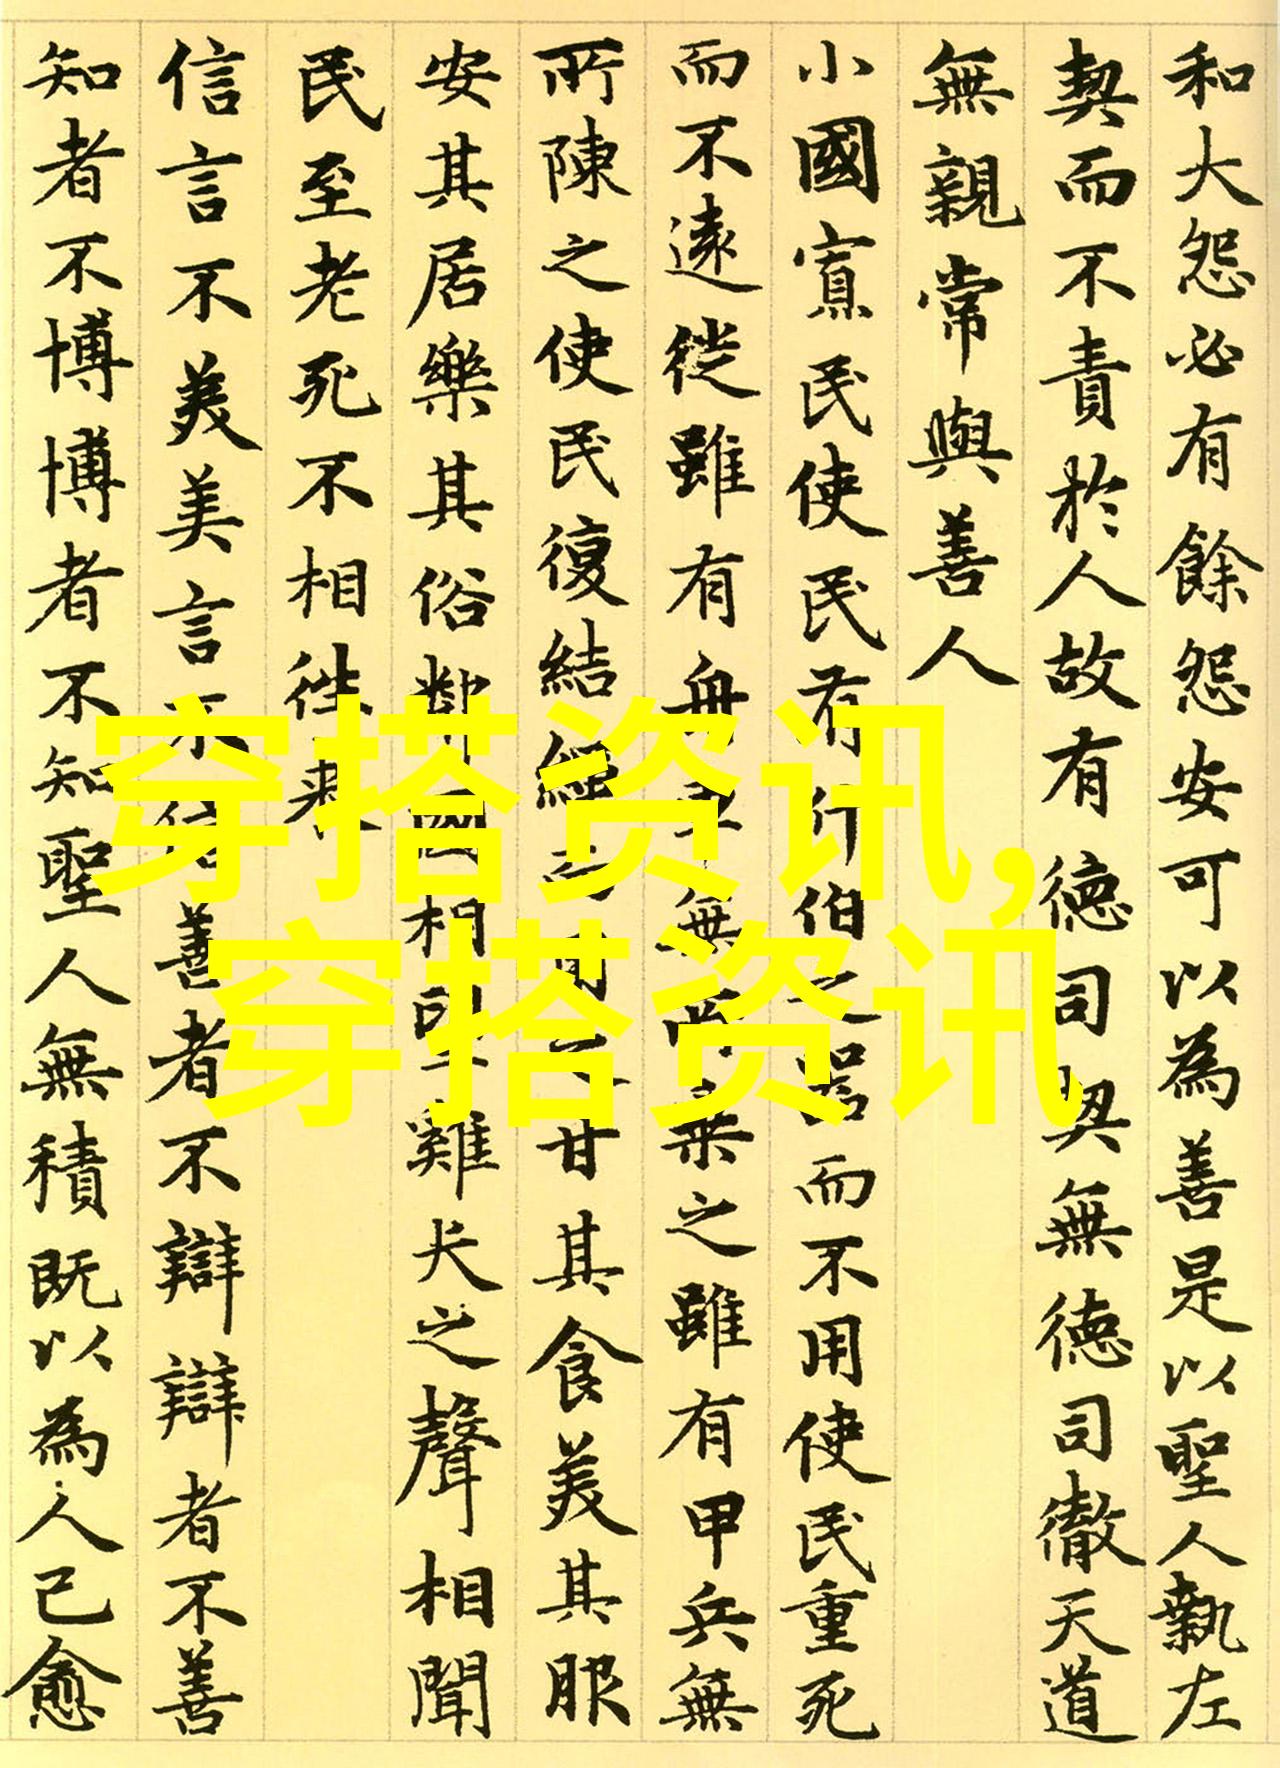 和大怨必有餘怨安可以為善是以聖人執左
契而不責於人故有德司契無德司徹天道
無親常與善人
小國寡民使民有什伯之器而不用使民重死
而不遠徙雖有舟輿無所乘之雖有甲兵無
所陳之使民復結繩而用之甘其食美其服
安其居樂其俗鄰國相望雞犬之聲相聞
民至老死不相往來
信言不美美言不信善者不辯辯者不善
知者不博博者不知聖人無積既以為人己愈
穿搭资讯,
穿搭资讯